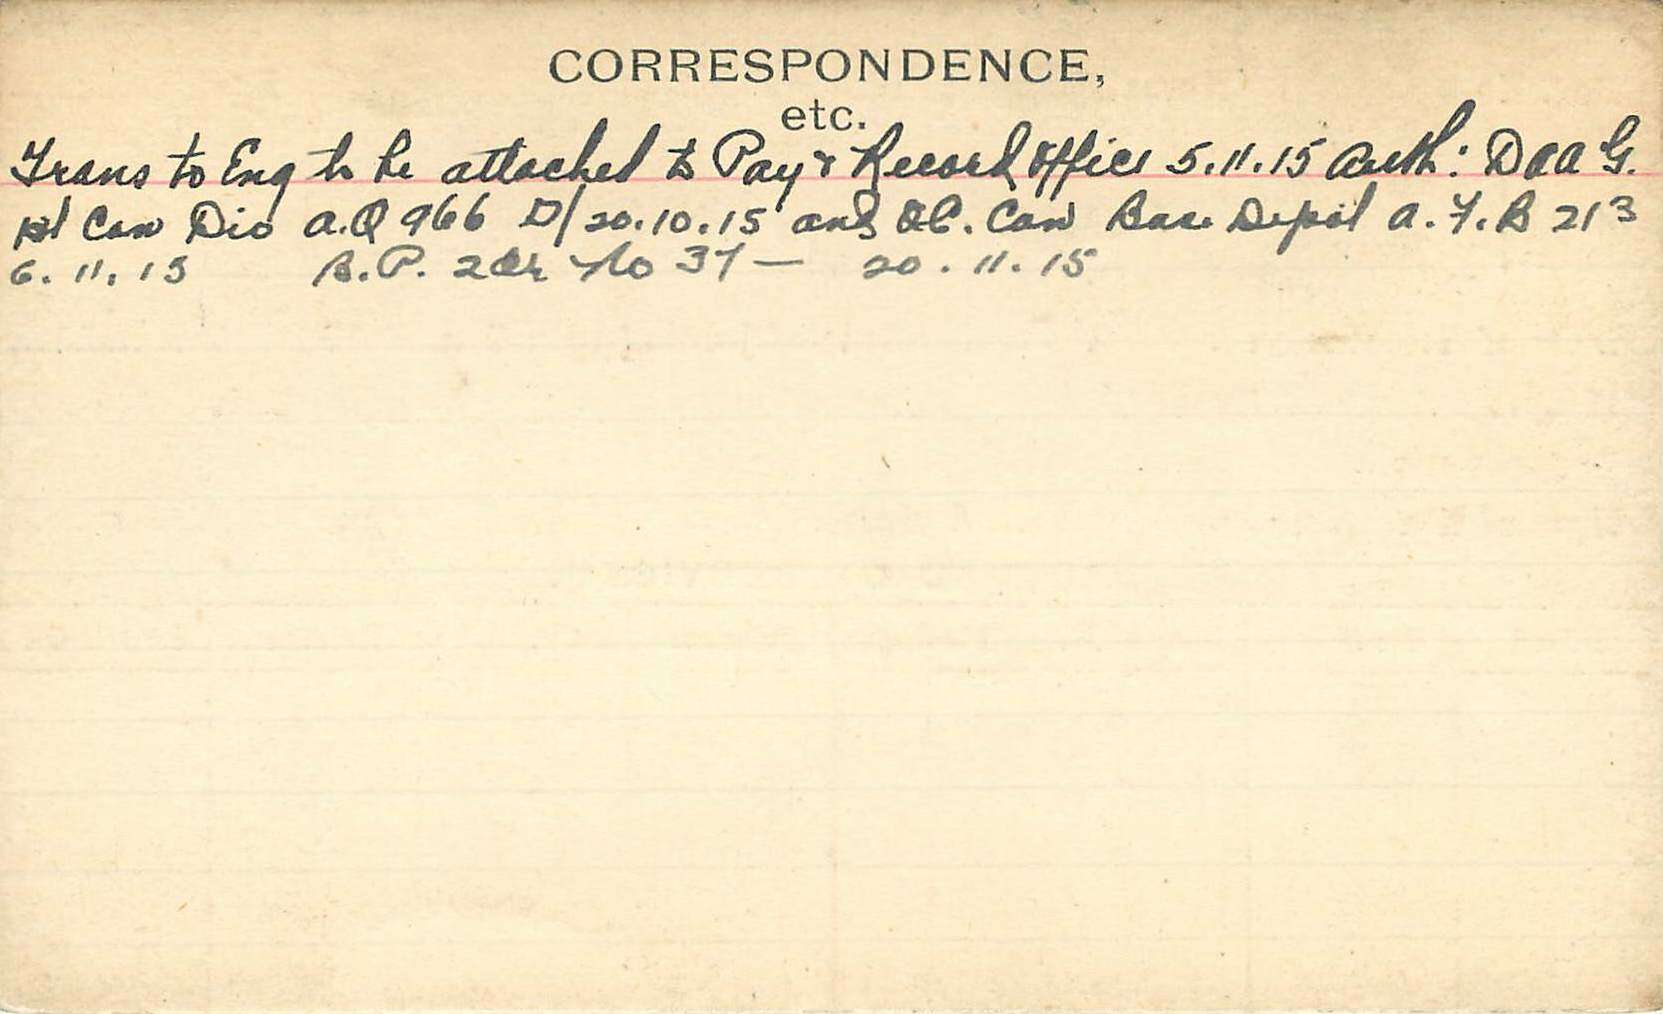 CORRESPONDENCE,
etc.
Trans to Eng to be attached to Pay & Record Office 5.11.15 Auth: DAAG.
1st Can Div A.Q 966 D/20.10.15 and O.C. Can Base Depot A.F.B 213
6.11.15 B.P. 2 No 37 — 20.11.15